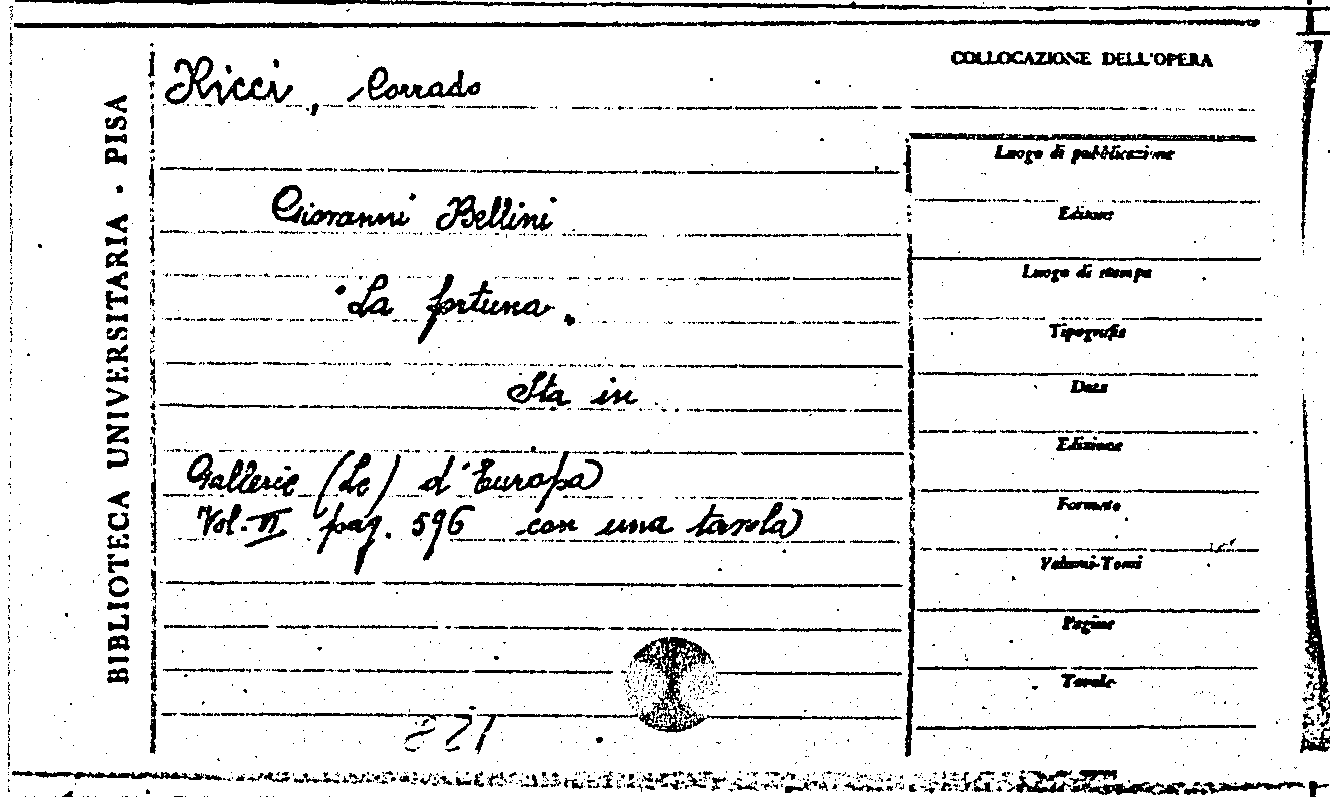 BIBLIOTECA UNIVERSITARIA · PISA
Ricci, Corrado
Giovanni Bellini
"La fortuna"
Sta in
Gallerie (Le) d'Europa
Vol. II pag. 596 con una tavola
COLLOCAZIONE DELL'OPERA
Luogo di pubblicazione
Editore
Luogo di stampa
Tipografia
Data
Edizione
Formato
Volumi-Tomi
Pagine
Tavole